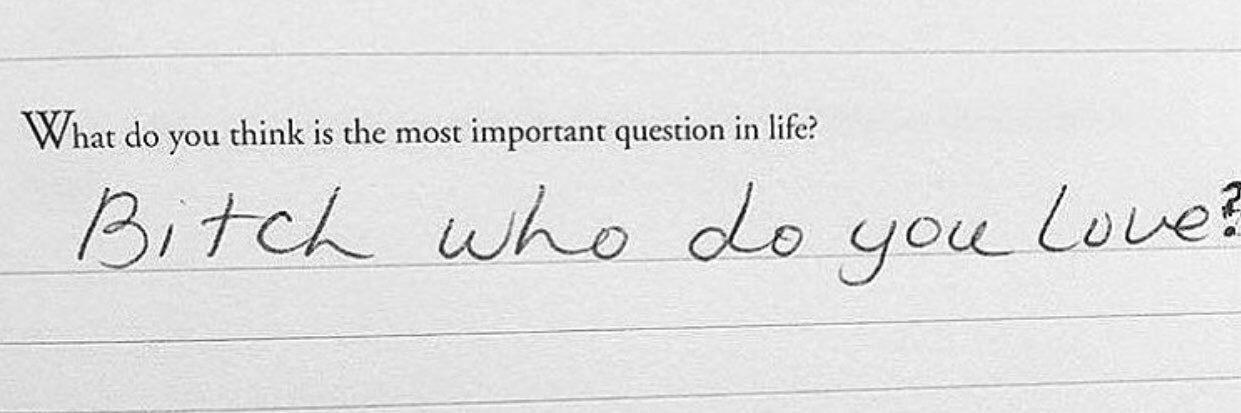 What do you think is the most important question in life?
Bitch who do you love?